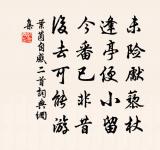 未險獻藜杖
逢亭便小留
今番已非昔
後去可能游
葉茵自感二首詞典網
集